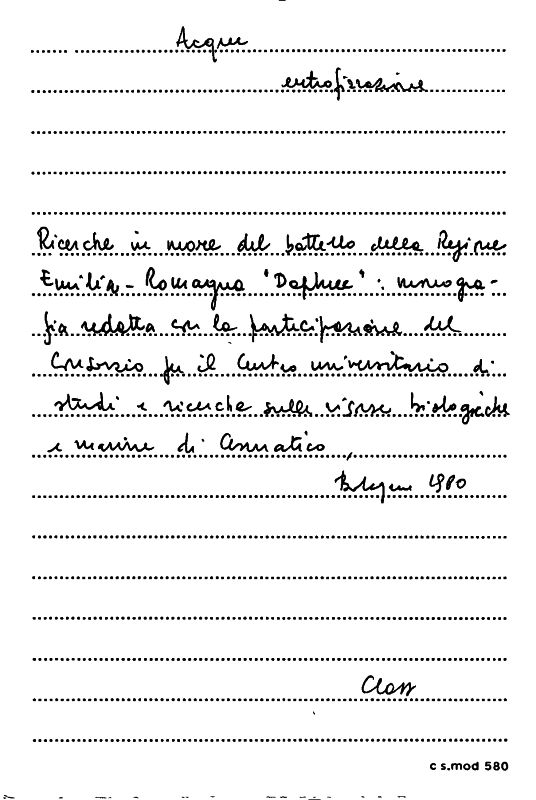 Acque
eutrofizzazione
Ricerche in mare del battello della Regione
Emilia-Romagna "Daphne": monogra-
fia redatta con la partecipazione del
Consorzio per il Centro universitario di
studi e ricerche sulle risorse biologiche
e marine di Cesenatico,
Bologna 1980
Class
c s.mod 580